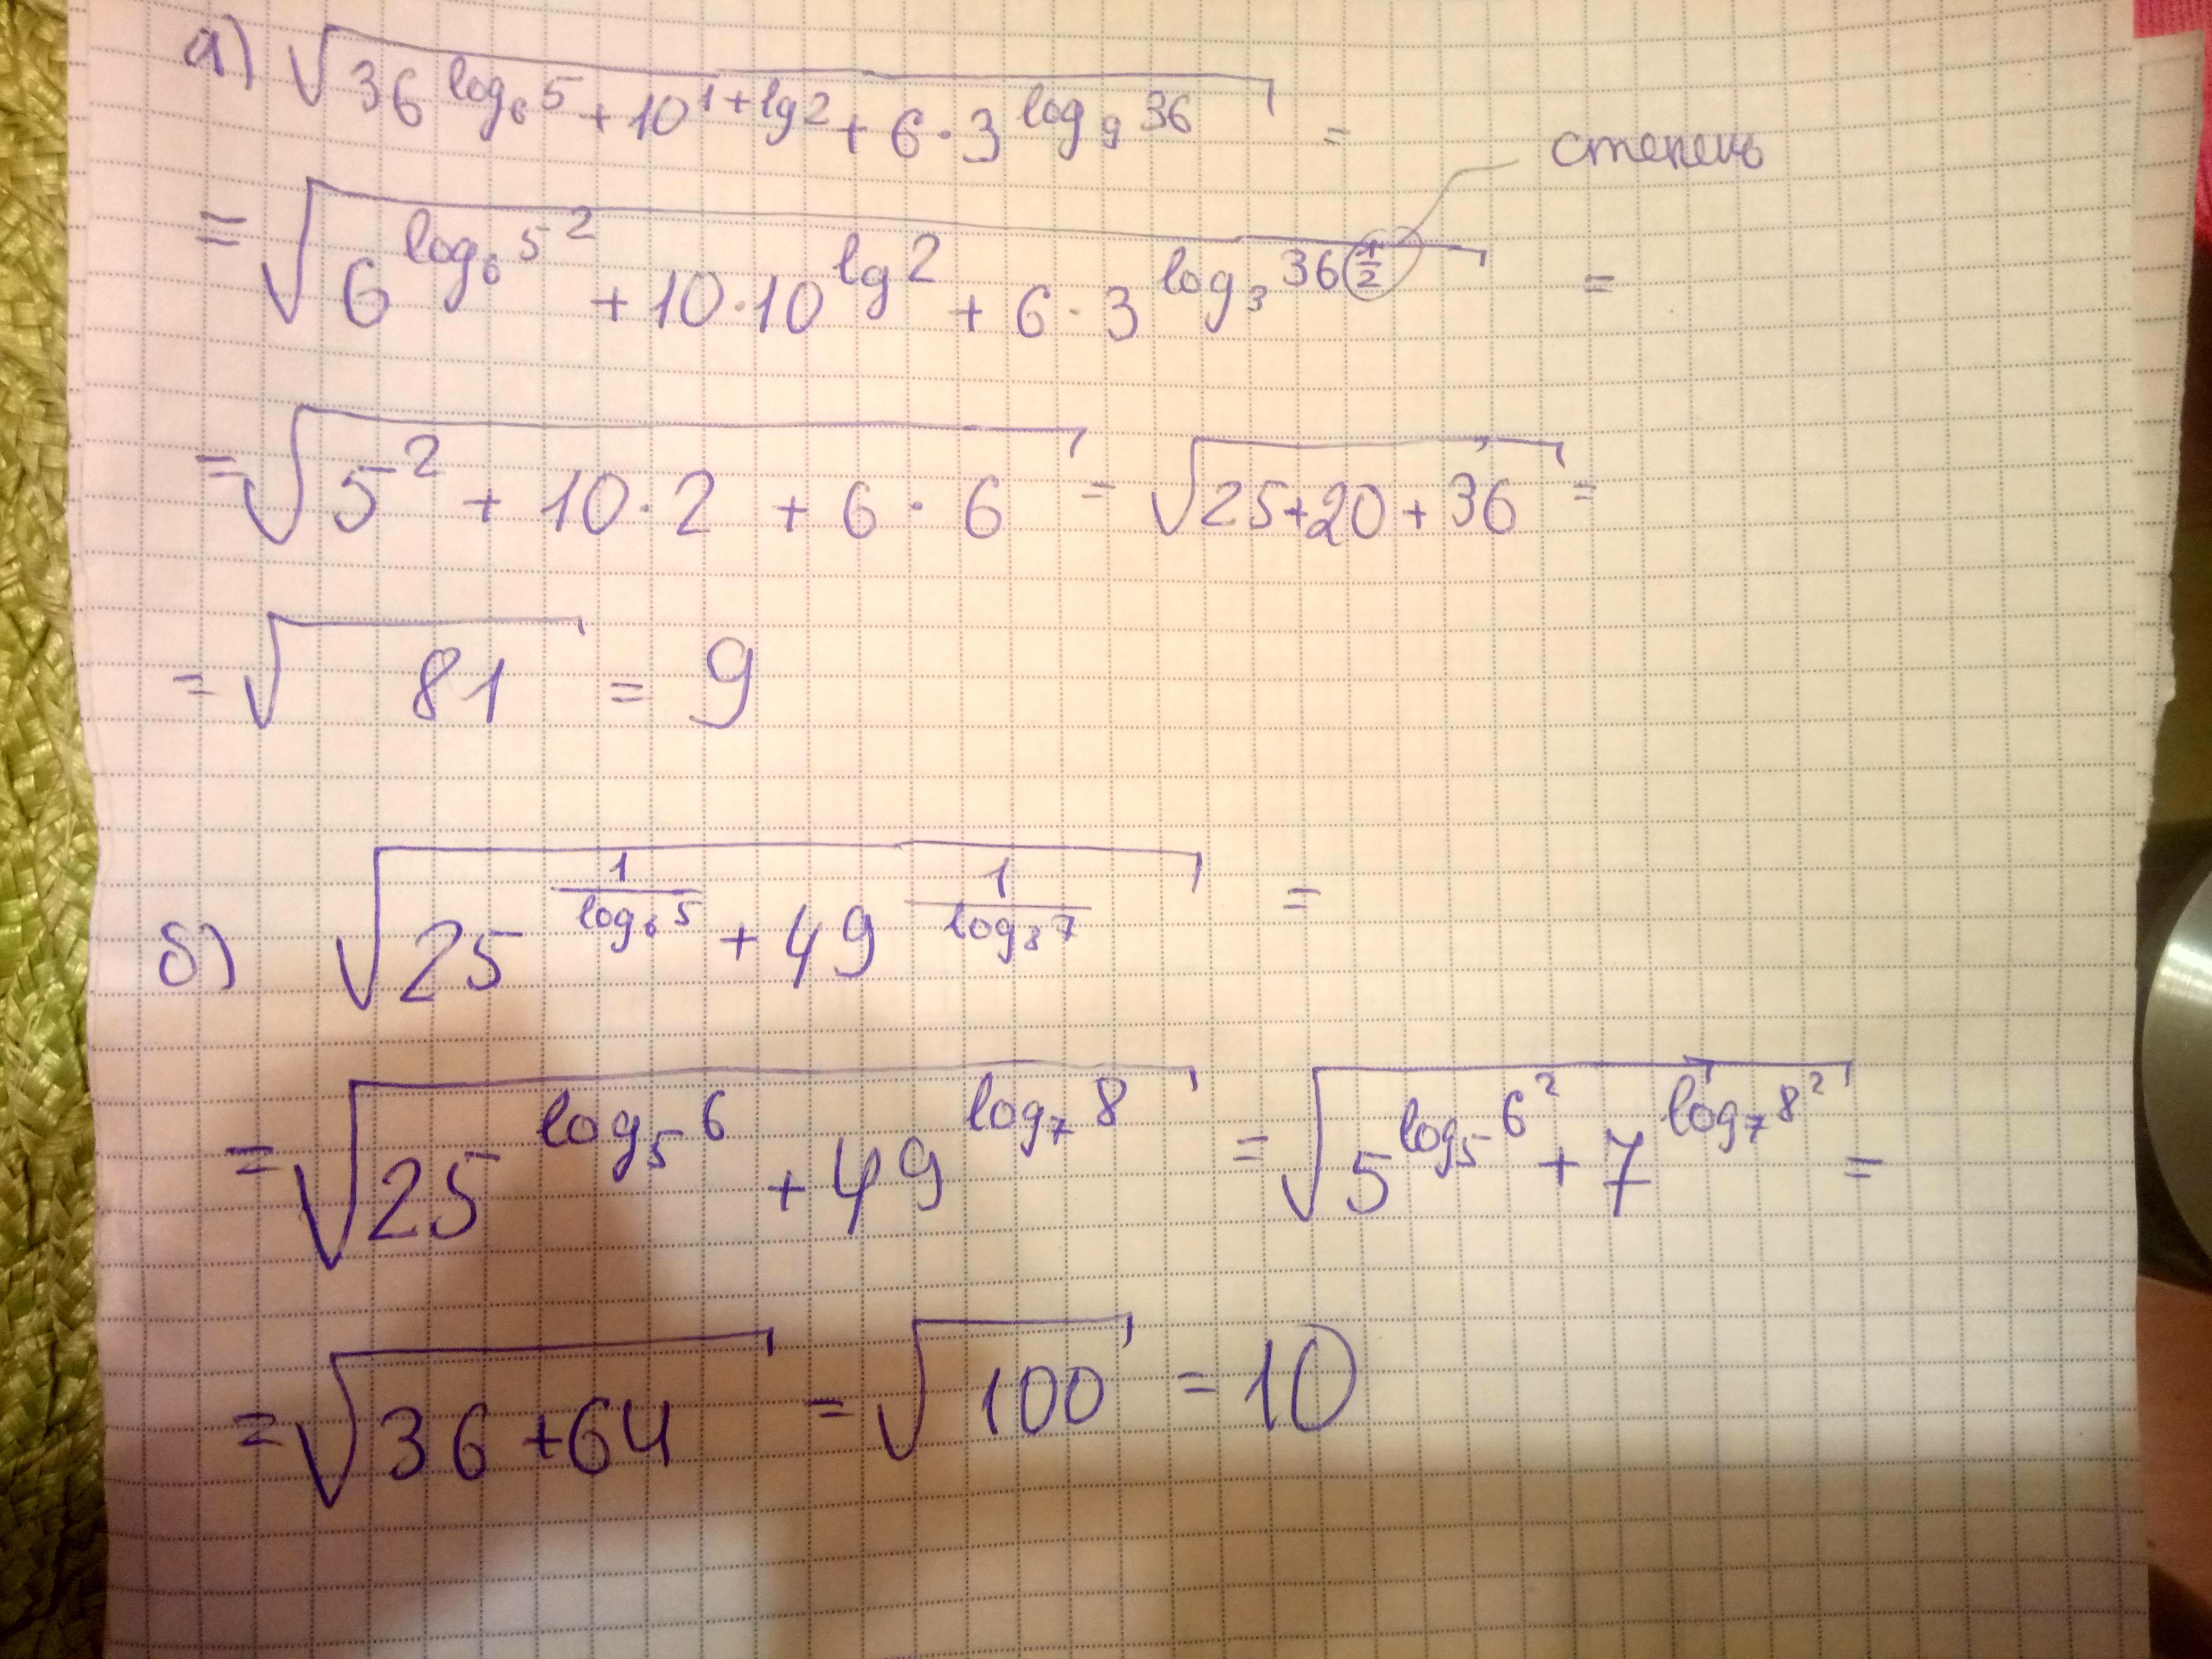 а) √(36^(log₆5) + 10^(1+lg2) + 6·3^(log₉36)) =
степень
= √(6^(log₆5²) + 10·10^(lg2) + 6·3^(log₃36^(1/2))) =
= √(5² + 10·2 + 6·6) = √(25+20+36) =
= √81 = 9
б) √(25^(1/log₆5) + 49^(1/log₈7)) =
= √(25^(log₅6) + 49^(log₇8)) = √(5^(log₅6²) + 7^(log₇8²)) =
= √(36+64) = √100 = 10